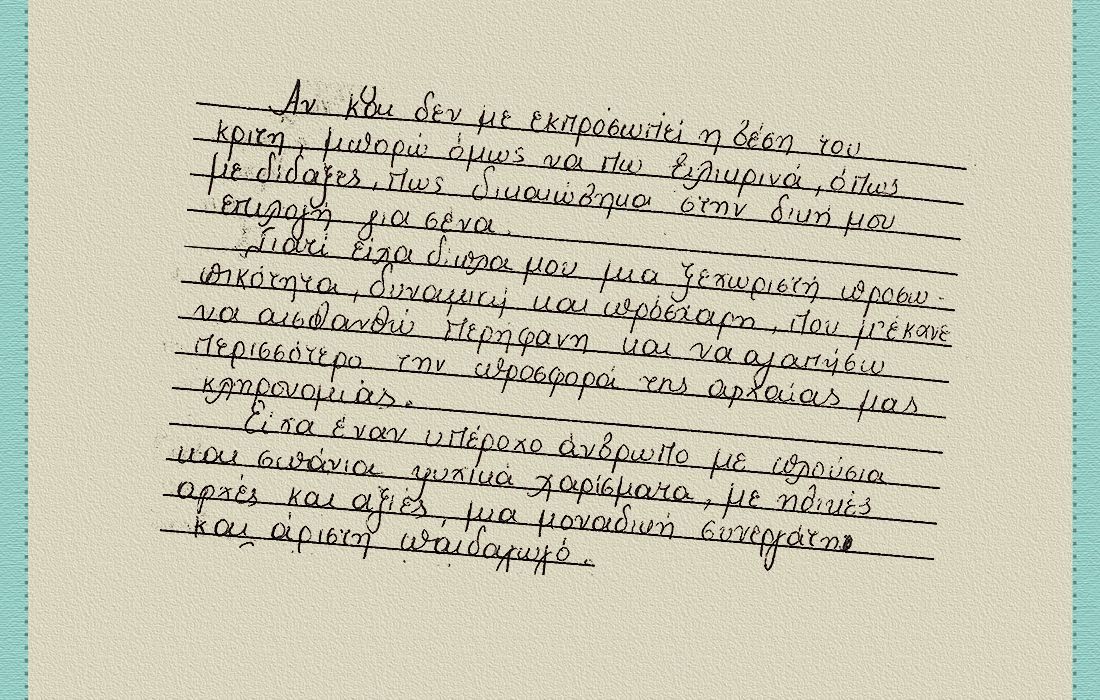 Αν και δεν με εκπροσωπεί η θέση του
κριτή, μπορώ όμως να πω ειλικρινά, όπως
με δίδαξες, πως δικαιώθηκα στην δική μου
επιλογή για σένα.
Γιατί είχα δίπλα μου μια ξεχωριστή προσω-
πικότητα, δυναμική και πρόσχαρη, που μ'έκανε
να αισθανθώ περήφανη και να αγαπήσω
περισσότερο την προσφορά της αρχαίας μας
κληρονομιάς.
Είχα έναν υπέροχο άνθρωπο με πλούσια
και σπάνια ψυχικά χαρίσματα, με ηθικές
αρχές και αξίες, μια μοναδική συνεργάτη
και άριστη παιδαγωγό.